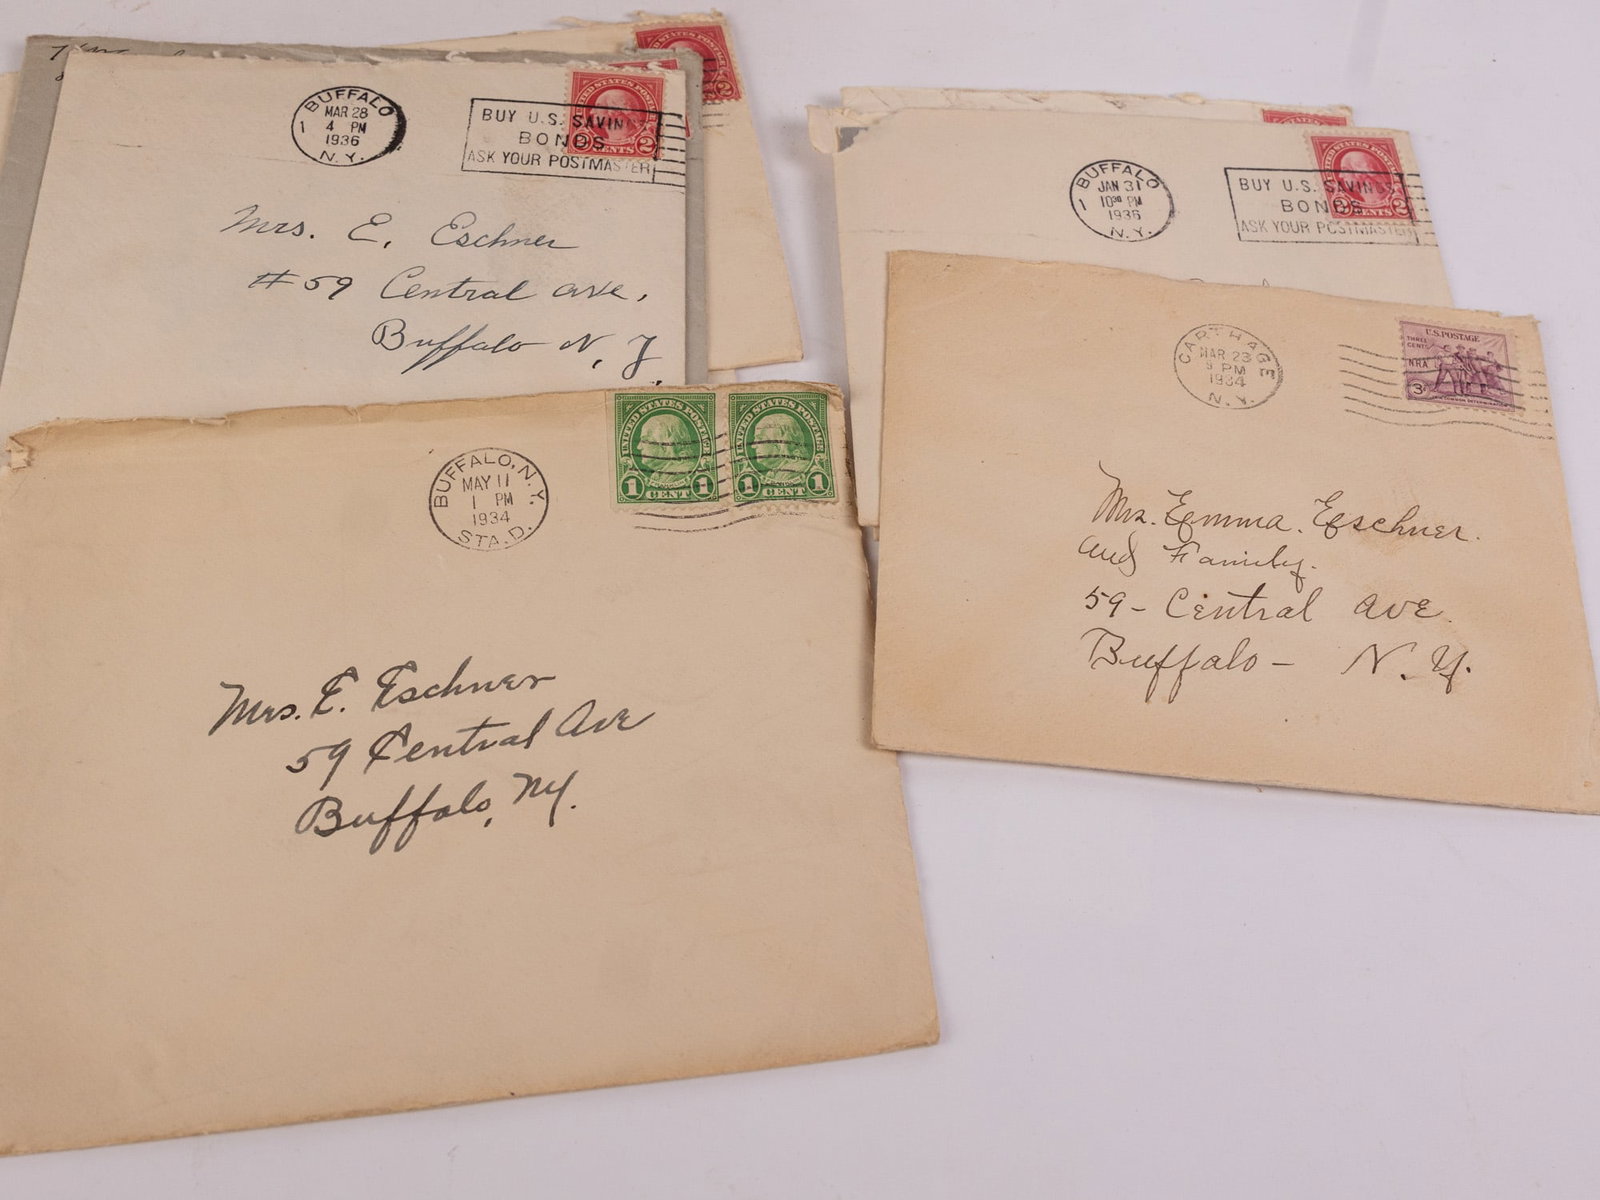 BUFFALO
MAR 28
4 PM
1936
N.Y.
1
BUY U.S. SAVINGS
BONDS
ASK YOUR POSTMASTER
UNITED STATES POSTAGE
2 CENTS 2
Mrs. E. Eschner
#59 Central Ave,
Buffalo N, Y
BUFFALO
JAN 31
10 30 PM
1936
N.Y.
1
BUY U.S. SAVINGS
BONDS
ASK YOUR POSTMASTER
2 CENTS 2
BUFFALO, N.Y.
MAY 11
1 PM
1934
STA. D.
UNITED STATES POSTAGE
1 CENT 1
UNITED STATES POSTAGE
1 CENT 1
Mrs. E. Eschner
59 Central Ave
Buffalo, NY.
CARTHAGE
MAR 23
PM
1934
N.Y.
U.S. POSTAGE
THREE
CENTS
NRA
3
Mrs. Emma. Eschner.
and Family.
59- Central Ave.
Buffalo- N.Y.